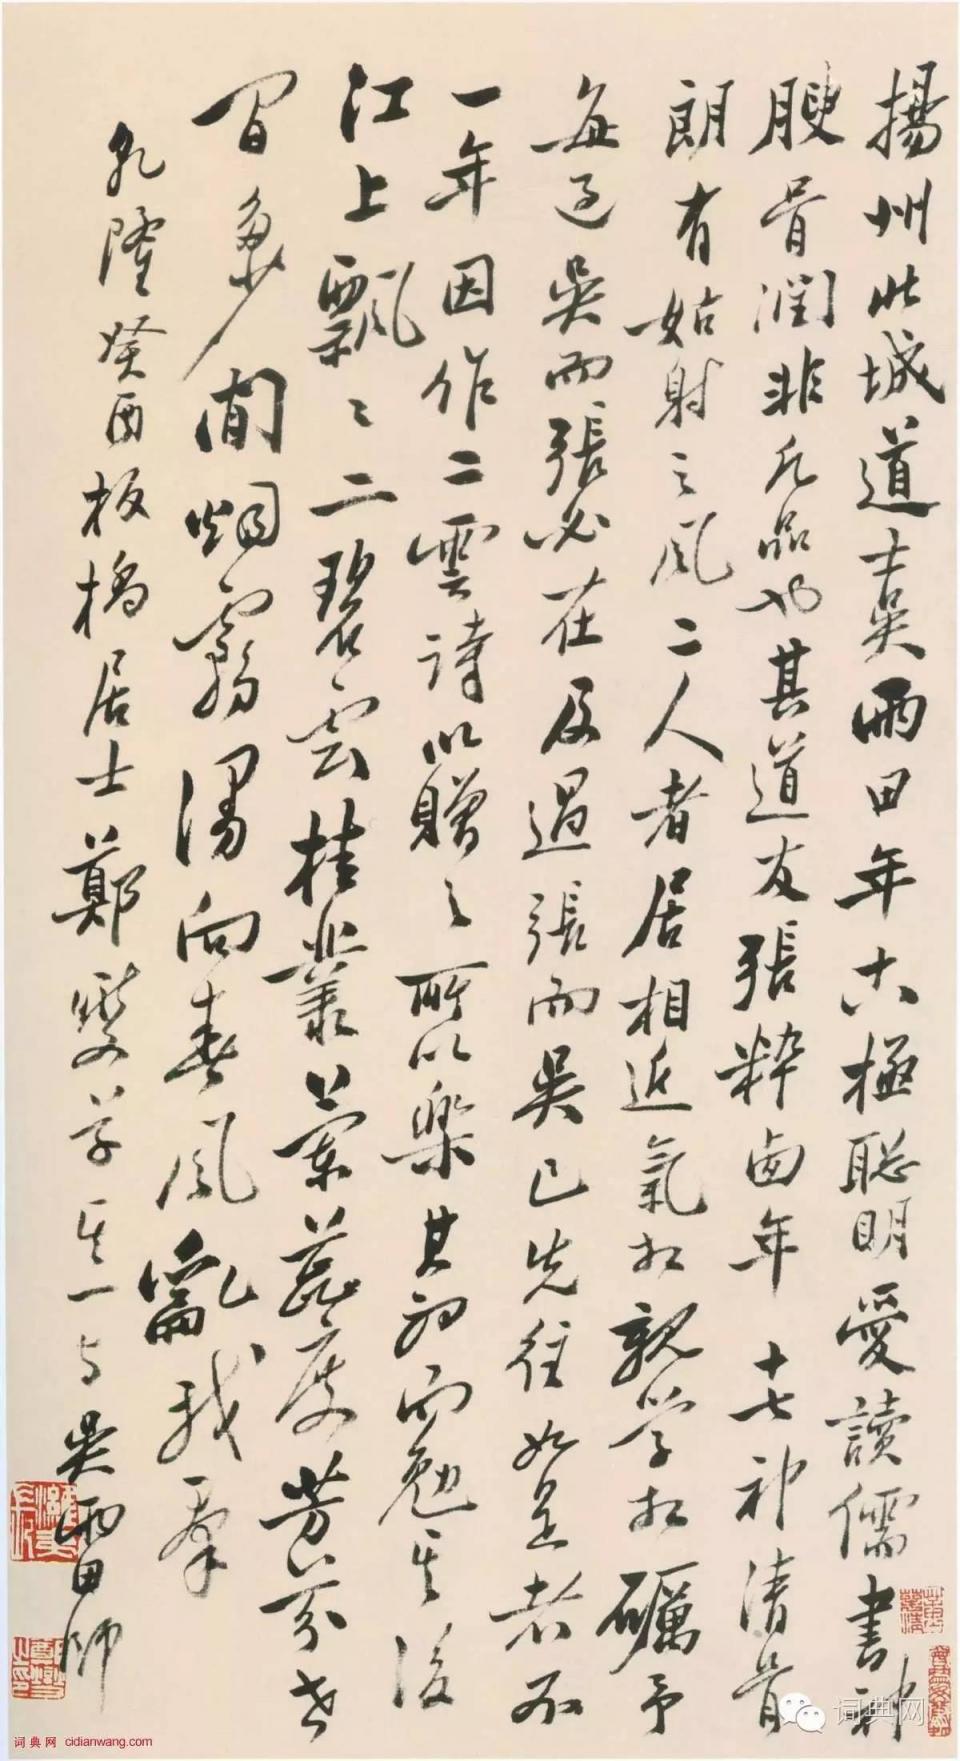 揚州北城道士吳雨田年十六極聰明愛讀儒書神
腴骨潤非凡品也其道友張粹西年十七神清骨
朗有姑射之風二人者居相近氣相親學相礪予
每過吳而張必在及過張而吳已先往如是者不
一年因作二雲詩以贈之所以樂其初而勉其後
江上飄〻二碧雲桂叢蘭蕊度芳芬世
間多少閒烟靄漫向春風亂我羣
乾隆癸酉板橋居士鄭燮草其一與吳雨田師
词典网
词典网 cidianwang.com